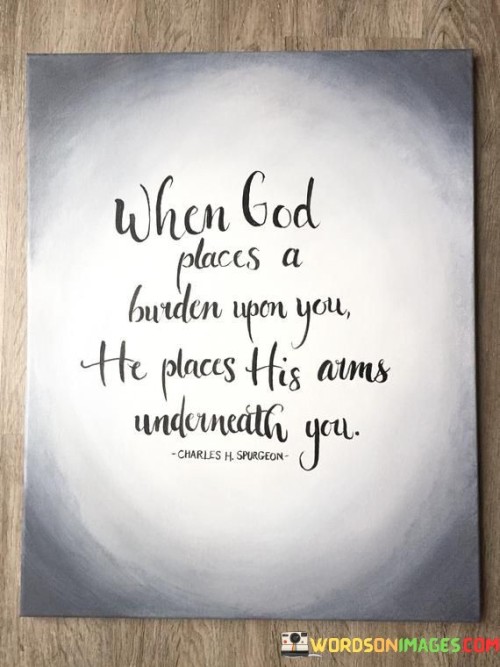 When God
places a
burden upon you,
He places His arms
underneath you.
-CHARLES H. SPURGEON-
WORDSONIMAGES.COM